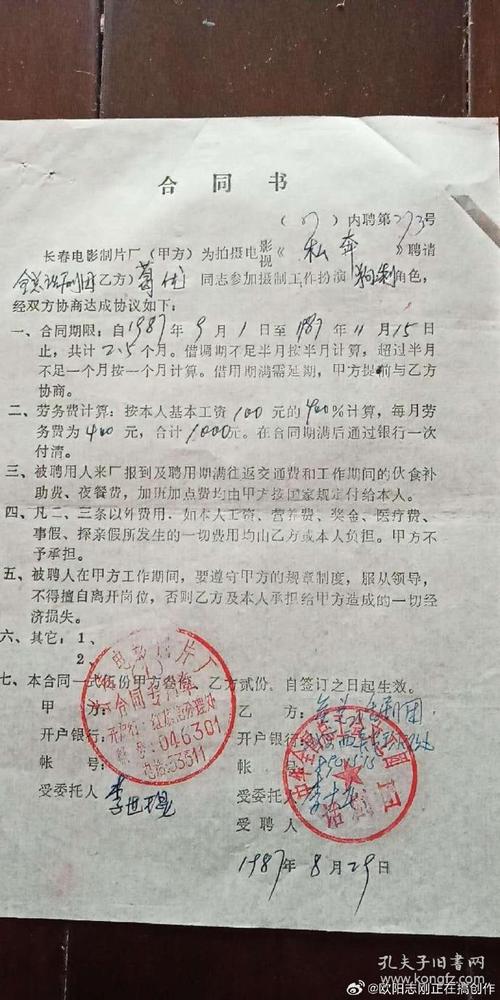 合同书
(87)内聘第273号
长春电影制片厂(甲方)为拍摄电影视《私奔》聘请
全总话剧团(乙方)葛优同志参加摄制工作扮演狗剩角色,
经双方协商达成协议如下:
一、合同期限:自1987年9月1日至1987年11月15日
止,共计2.5个月。借调期不足半月按半月计算,超过半月
不足一个月按一个月计算。借用期满需延期,甲方提前与乙方
协商。
二、劳务费计算:按本人基本工资100元的400%计算,每月劳
务费为400元,合计1000元。在合同期满后通过银行一次
付清。
三、被聘用人来厂报到及聘用期满往返交通费和工作期间的伙食补
助费、夜餐费,加班加点费均由甲方按国家规定付给本人。
四、凡二、三条以外费用,如本人工资、营养费、奖金、医疗费、
事假、探亲假所发生的一切费用均由乙方或本人负担。甲方不
予承担。
五、被聘人在甲方工作期间,要遵守甲方的规章制度,服从领导,
不得擅自离开岗位,否则乙方及本人承担给甲方造成的一切经
济损失。
六、其它:1、
2、
七、本合同一式伍份甲方叁份,乙方贰份,自签订之日起生效。
甲方: 乙方:全总话剧团
开户银行: 开户银行:
帐号: 帐号:
受委托人 李世 受委托人 李
受聘人
电影制片厂
合同专用章
046301
中华全国总工会
话剧团
1987年8月29日
孔夫子旧书网
@欧阳志刚正在搞创作